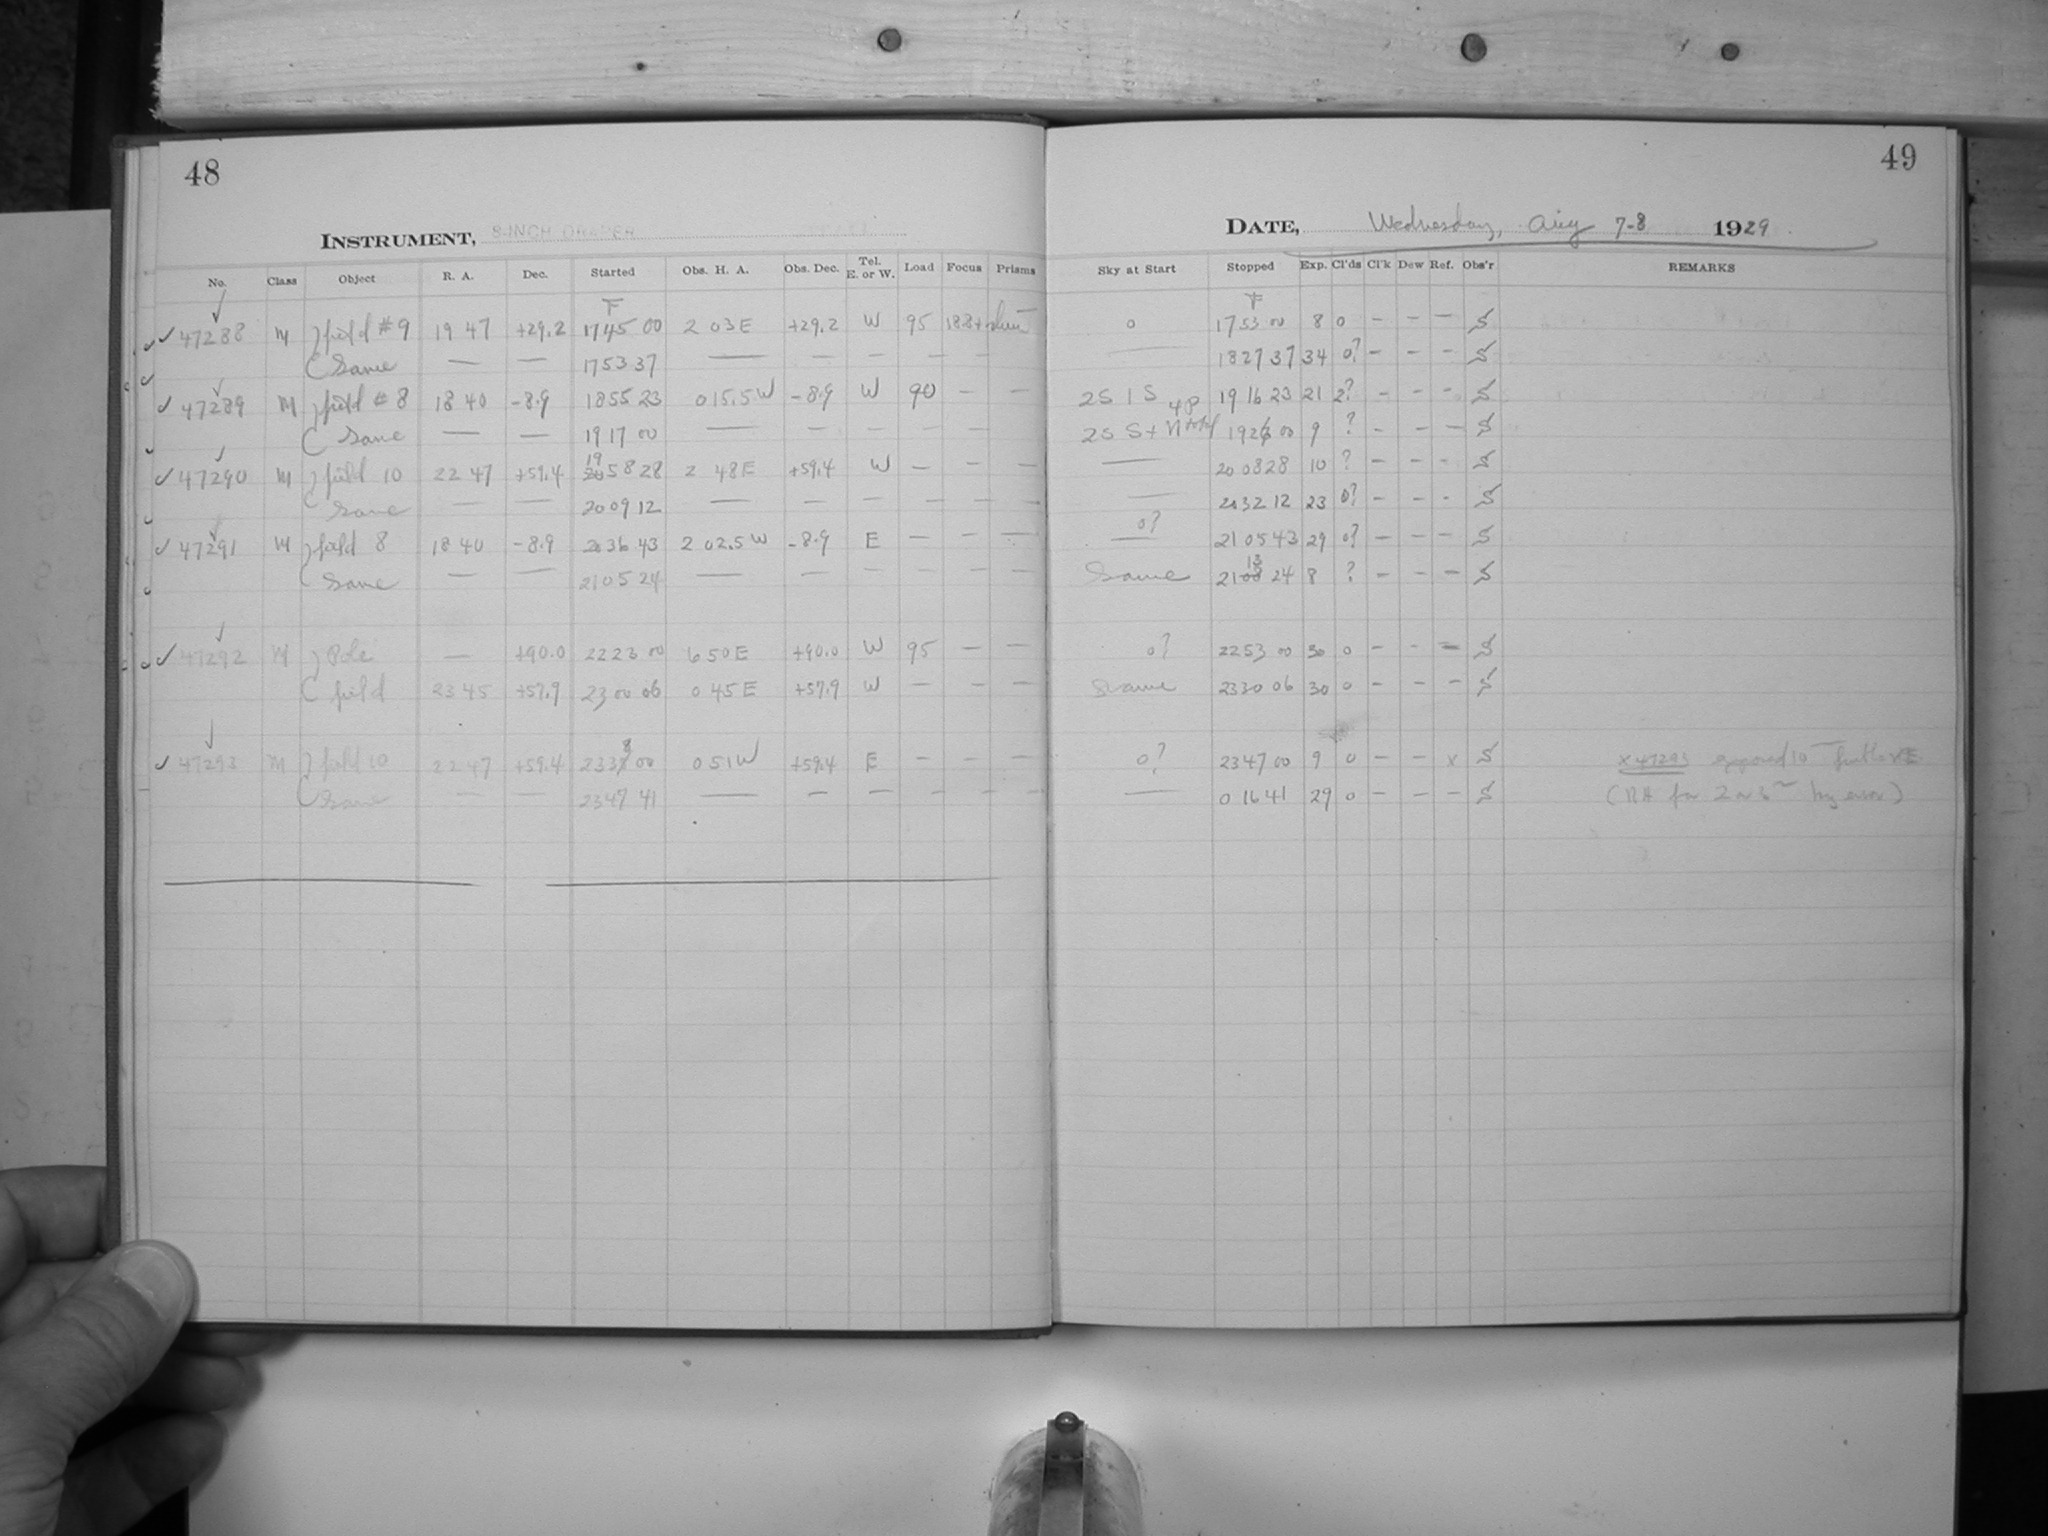 48
INSTRUMENT, 8-INCH DRAPER
No. Class Object R. A. Dec. Started Obs. H. A. Obs. Dec. Tel. E. or W. Load Focus Prisms
47288 M field #9 19 47 +29.2 17 45 00 2 03 E +29.2 W 95
Same — — 17 53 37 — — — — — —
47289 M field #8 18 40 -8.9 18 55 23 0 15.5 W -8.9 W 90 — —
Same — — 19 17 00 — — — — — —
47290 M field 10 22 47 +59.4 19 58 28 2 48 E +59.4 W — — —
Same — — 20 09 12 — — — — — —
47291 M field 8 18 40 -8.9 20 36 43 2 02.5 W -8.9 E — — —
Same — — 21 05 24 — — — — — —
47292 M Pole — +90.0 22 23 00 6 50 E +90.0 W 95 — —
field 23 45 +57.9 23 00 06 0 45 E +57.9 W — — —
47293 M field 10 22 47 +59.4 23 38 00 0 51 W +59.4 E — — —
Same — — 23 47 41 — — — — — —
49
DATE, Wednesday, Aug 7-8 1929
Sky at Start Stopped Exp. Cl'ds Cl'k Dew Ref. Obs'r REMARKS
0 17 53 00 8 0 — — — S
— 18 27 37 34 0? — — — S
25 1 S 19 16 23 21 2? — — — S
25 S + N total 19 26 00 9 ? — — — S
— 20 08 28 10 ? — — — S
— 20 32 12 23 0? — — — S
0? 21 05 43 29 0? — — — S
Same 21 13 24 8 ? — — — S
0? 22 53 00 30 0 — — — S
Same 23 30 06 30 0 — — — S
0? 23 47 00 9 0 — — x S x 47293 exposed 10 further E
— 0 16 41 29 0 — — — S (RA for 2 by error)